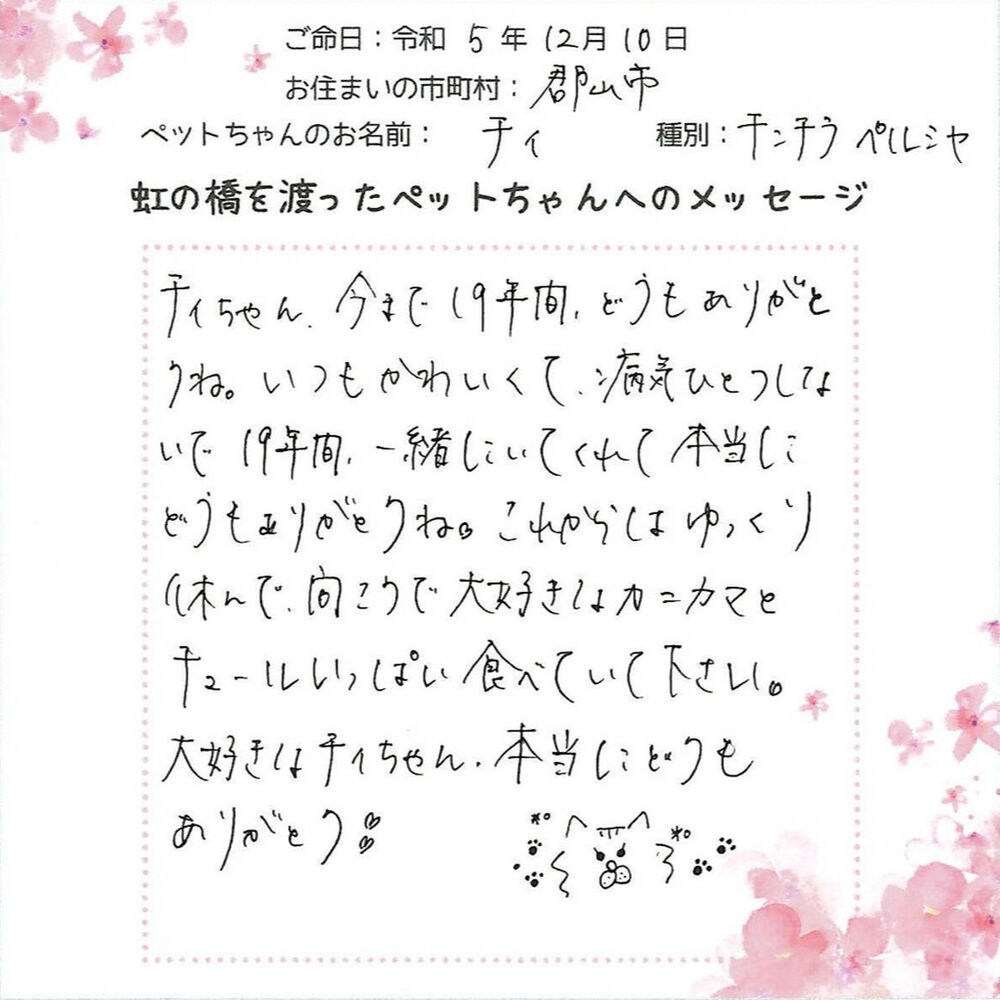 ご命日：令和 5 年 12月 10日
お住まいの市町村： 郡山市
ペットちゃんのお名前： チィ 種別：チンチラ ペルシャ
虹の橋を渡ったペットちゃんへのメッセージ
チィちゃん、今まで19年間、どうもありがと
うね。いつもかわいくて、病気ひとつしな
いで19年間、一緒にいてくれて本当に
どうもありがとうね。これからはゆっくり
休んで、向こうで大好きなカニカマと
チュールいっぱい食べていて下さい。
大好きなチィちゃん、本当にどうも
ありがとう